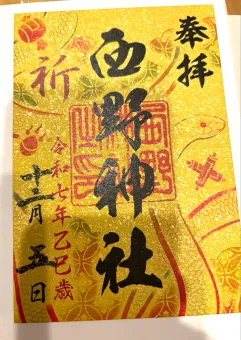 奉拝
西野神社
祈
令和七年乙巳歳
十二月五日